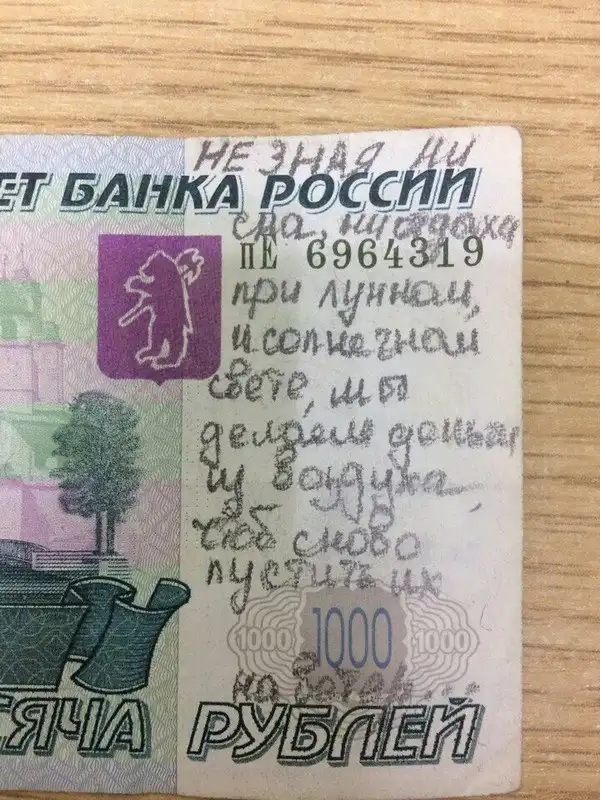 НЕ ЗНАЯ НИ
ЕТ БАНКА РОССИИ
сна, ни отдыха
пЕ 6964319
при лунном,
и солнечном
свете, мы
делаем деньги
из воздуха,
чтоб сново
пустить их
1000 1000 1000
на ветер...
СЯЧА РУБЛЕЙ